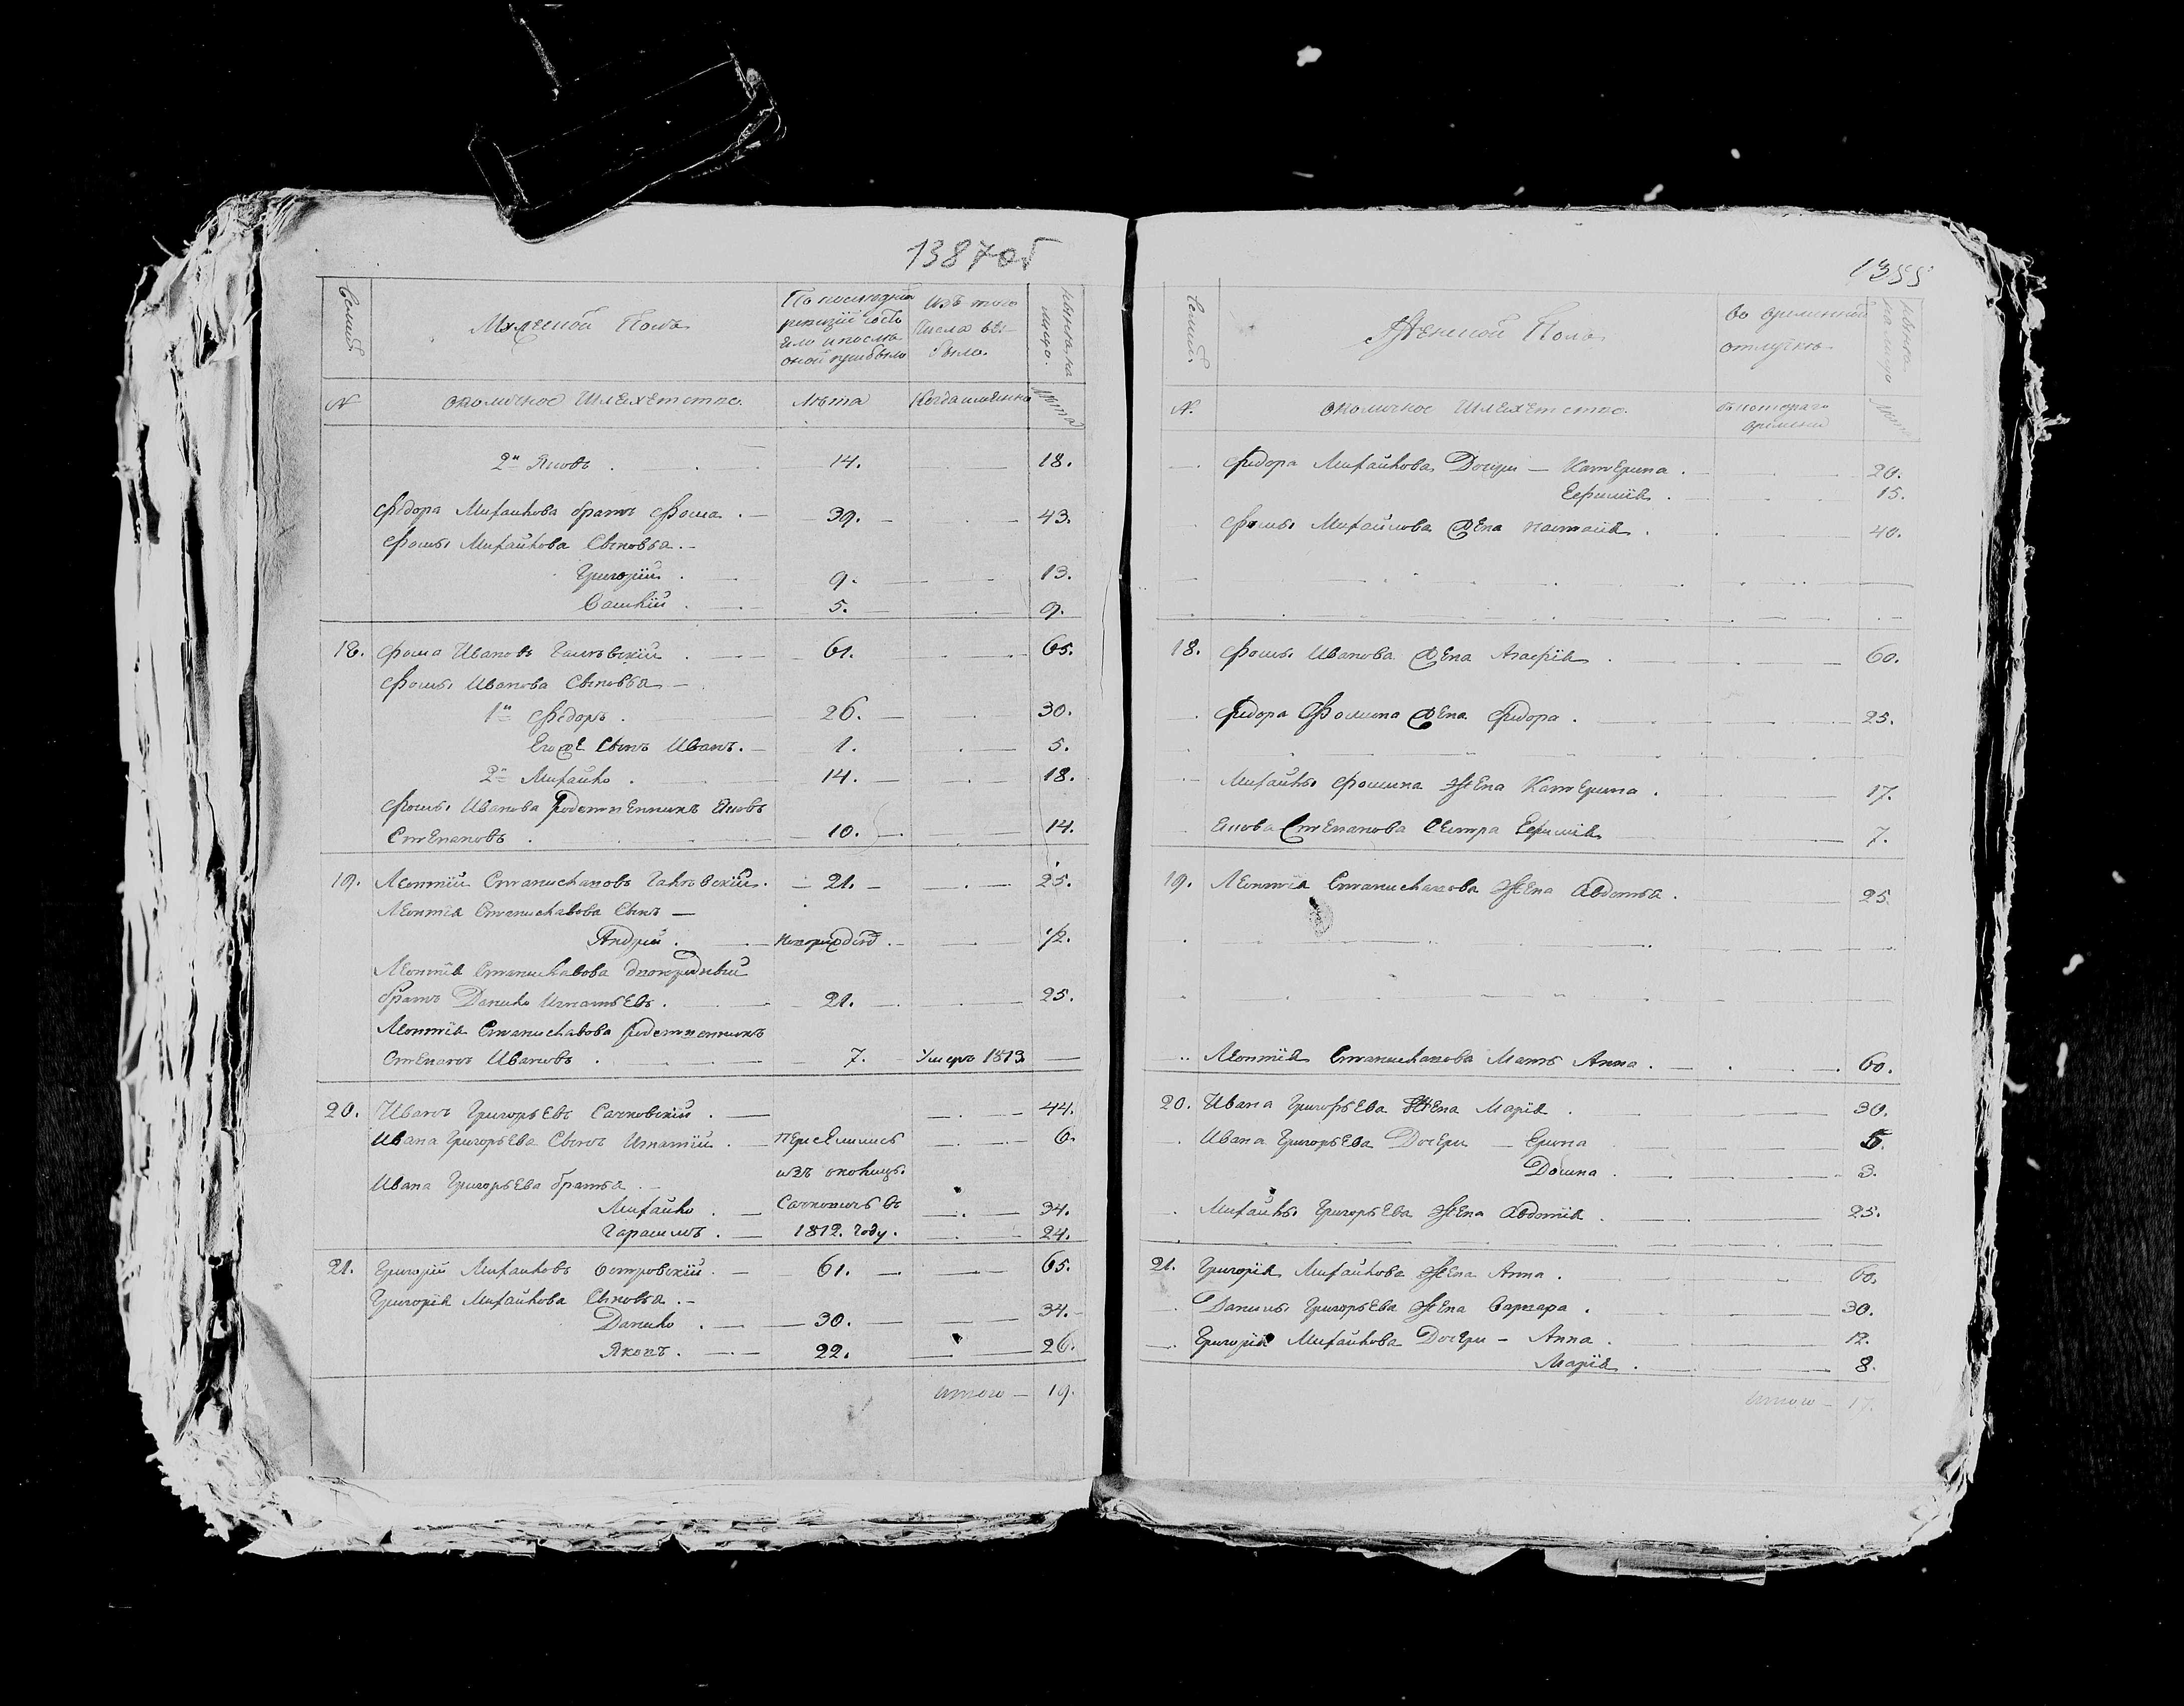 1387об
Семьи
Мужеской Полъ
По последней
ревизіи состо
яло и после
оной прибыло
Изъ того
числа вы-
было.
Ныне на
лицо.
N
околичное Шляхетство.
Лѣта
Когда именно
Лѣта
2й Яковъ . 14. 18.
Федора Михайлова братъ Фома . 39. 43.
Фомы Михайлова Сыновья.
Григорій . 9. 13.
Василій . 5. 9.
18. Фома Ивановъ . 61. 65.
Фомы Иванова Сыновья
1й Федоръ . 26. 30.
Его же Сынъ Иванъ. 1. 5.
2й Михайло . 14. 18.
Фомы Иванова родственникъ Яковъ
Степановъ . 10. 14.
19. Леонтій Станиславовъ . 21. 25.
Леонтія Станиславова Сынъ —
Андрей . новорожденъ . 1/2.
Леонтія Станиславова двоюродный
братъ Данило Игнатьевъ . 21. 25.
Леонтія Станиславова родственникъ
Степанъ Ивановъ . 7. Умеръ 1813
20. Иванъ Григорьевъ Сачковскій . 44.
Ивана Григорьева Сынъ Игнатій . переселились 6.
изъ околицы
Ивана Григорьева братья .
Михайло . Сачковичъ въ 34.
Гарасимъ . 1812. году. 24.
21. Григорій Михайловъ Островскій . 61. 65.
Григорія Михайлова Сыновья .
Данило . 30. 34.
Яковъ . 22. 26.
итого — 19.
1355
Семьи
Женской Полъ
Во временной
отлучкѣ
Ныне
на лицо
N.
околичное Шляхетство.
съ котораго
времени
Лѣта
Федора Михайлова Дочери — Катерина . 20.
Ефимія . 15.
Фомы Михайлова Жена Настасія . 40.
18. Фомы Иванова Жена Агафія . 60.
Федора Фомина Жена Федора . 25.
Михайлы Фомина Жена Катерина . 17.
Якова Степанова Сестра Ефимія 7.
19. Леонтія Станиславова Жена Авдотья . 25.
Леонтія Станиславова Мать Анна . 60.
20. Ивана Григорьева Жена Марія . 30.
Ивана Григорьева Дочери — Ерина 5.
Домна . 3.
Михайлы Григорьева Жена Авдотія . 25.
21. Григорія Михайлова Жена Анна . 60.
Данилы Григорьева Жена Варвара . 30.
Григорія Михайлова Дочери — Анна . 12.
Марія . 8.
итого — 17.